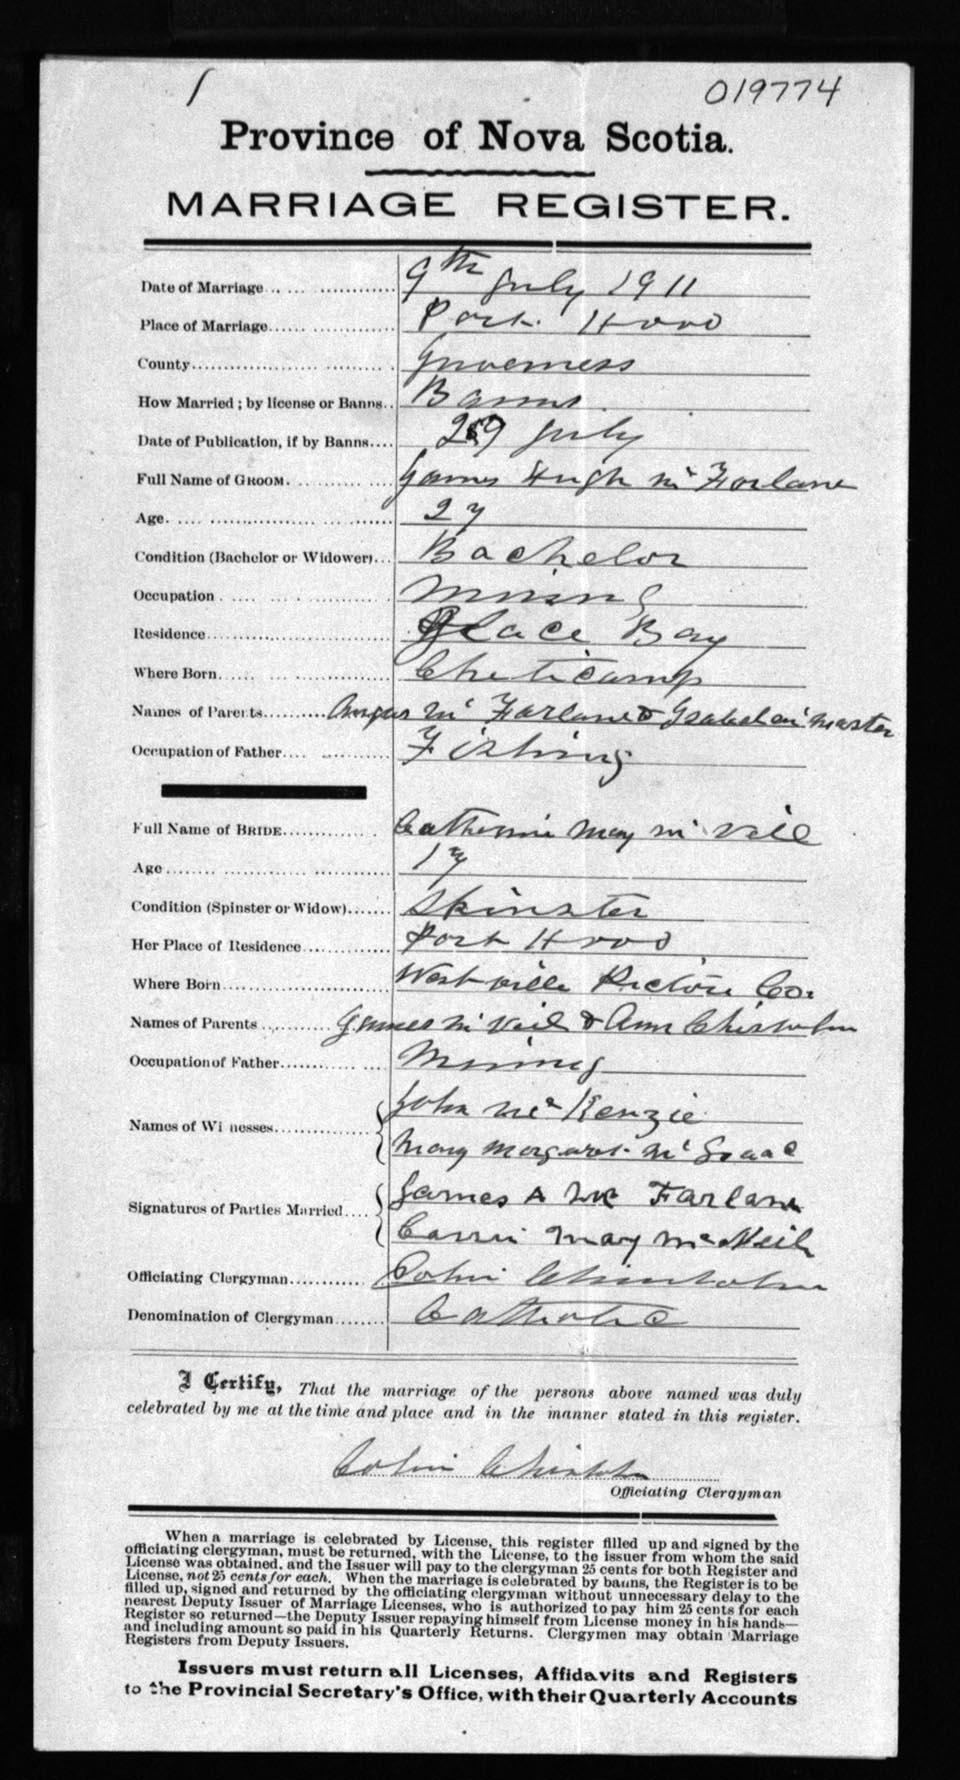 1 019774
Province of Nova Scotia.
MARRIAGE REGISTER.
Date of Marriage 9th July 1911
Place of Marriage Port Hood
County Inverness
How Married; by license or Banns Banns.
Date of Publication, if by Banns 2 9 July
Full Name of GROOM. James Hugh Mc Farlane
Age. 27
Condition (Bachelor or Widower) Bachelor
Occupation Mining
Residence Glace Bay
Where Born Cheticamp
Names of Parents Angus Mc Farlane & Isabel Mc Master
Occupation of Father Fishing
Full Name of BRIDE Catherine May Mc Neil
Age 17
Condition (Spinster or Widow) Spinster
Her Place of Residence Port Hood
Where Born Westville Pictou Co.
Names of Parents James Mc Neil & Ann Chisholm
Occupation of Father Mining
Names of Wi nesses John Mc Kenzie
Mary Margaret Mc Isaac
Signatures of Parties Married James A Mc Farlane
Carrie May McNeil
Officiating Clergyman Colin Chisholm
Denomination of Clergyman Catholic
I Certify, That the marriage of the persons above named was duly
celebrated by me at the time and place and in the manner stated in this register.
Colin Chisholm
Officiating Clergyman
When a marriage is celebrated by License, this register filled up and signed by the
officiating clergyman, must be returned, with the License, to the issuer from whom the said
License was obtained, and the Issuer will pay to the clergyman 25 cents for both Register and
License, not 25 cents for each. When the marriage is celebrated by banns, the Register is to be
filled up, signed and returned by the officiating clergyman without unnecessary delay to the
nearest Deputy Issuer of Marriage Licenses, who is authorized to pay him 25 cents for each
Register so returned—the Deputy Issuer repaying himself from License money in his hands—
and including amount so paid in his Quarterly Returns. Clergymen may obtain Marriage
Registers from Deputy Issuers.
Issuers must return all Licenses, Affidavits and Registers
to the Provincial Secretary's Office, with their Quarterly Accounts